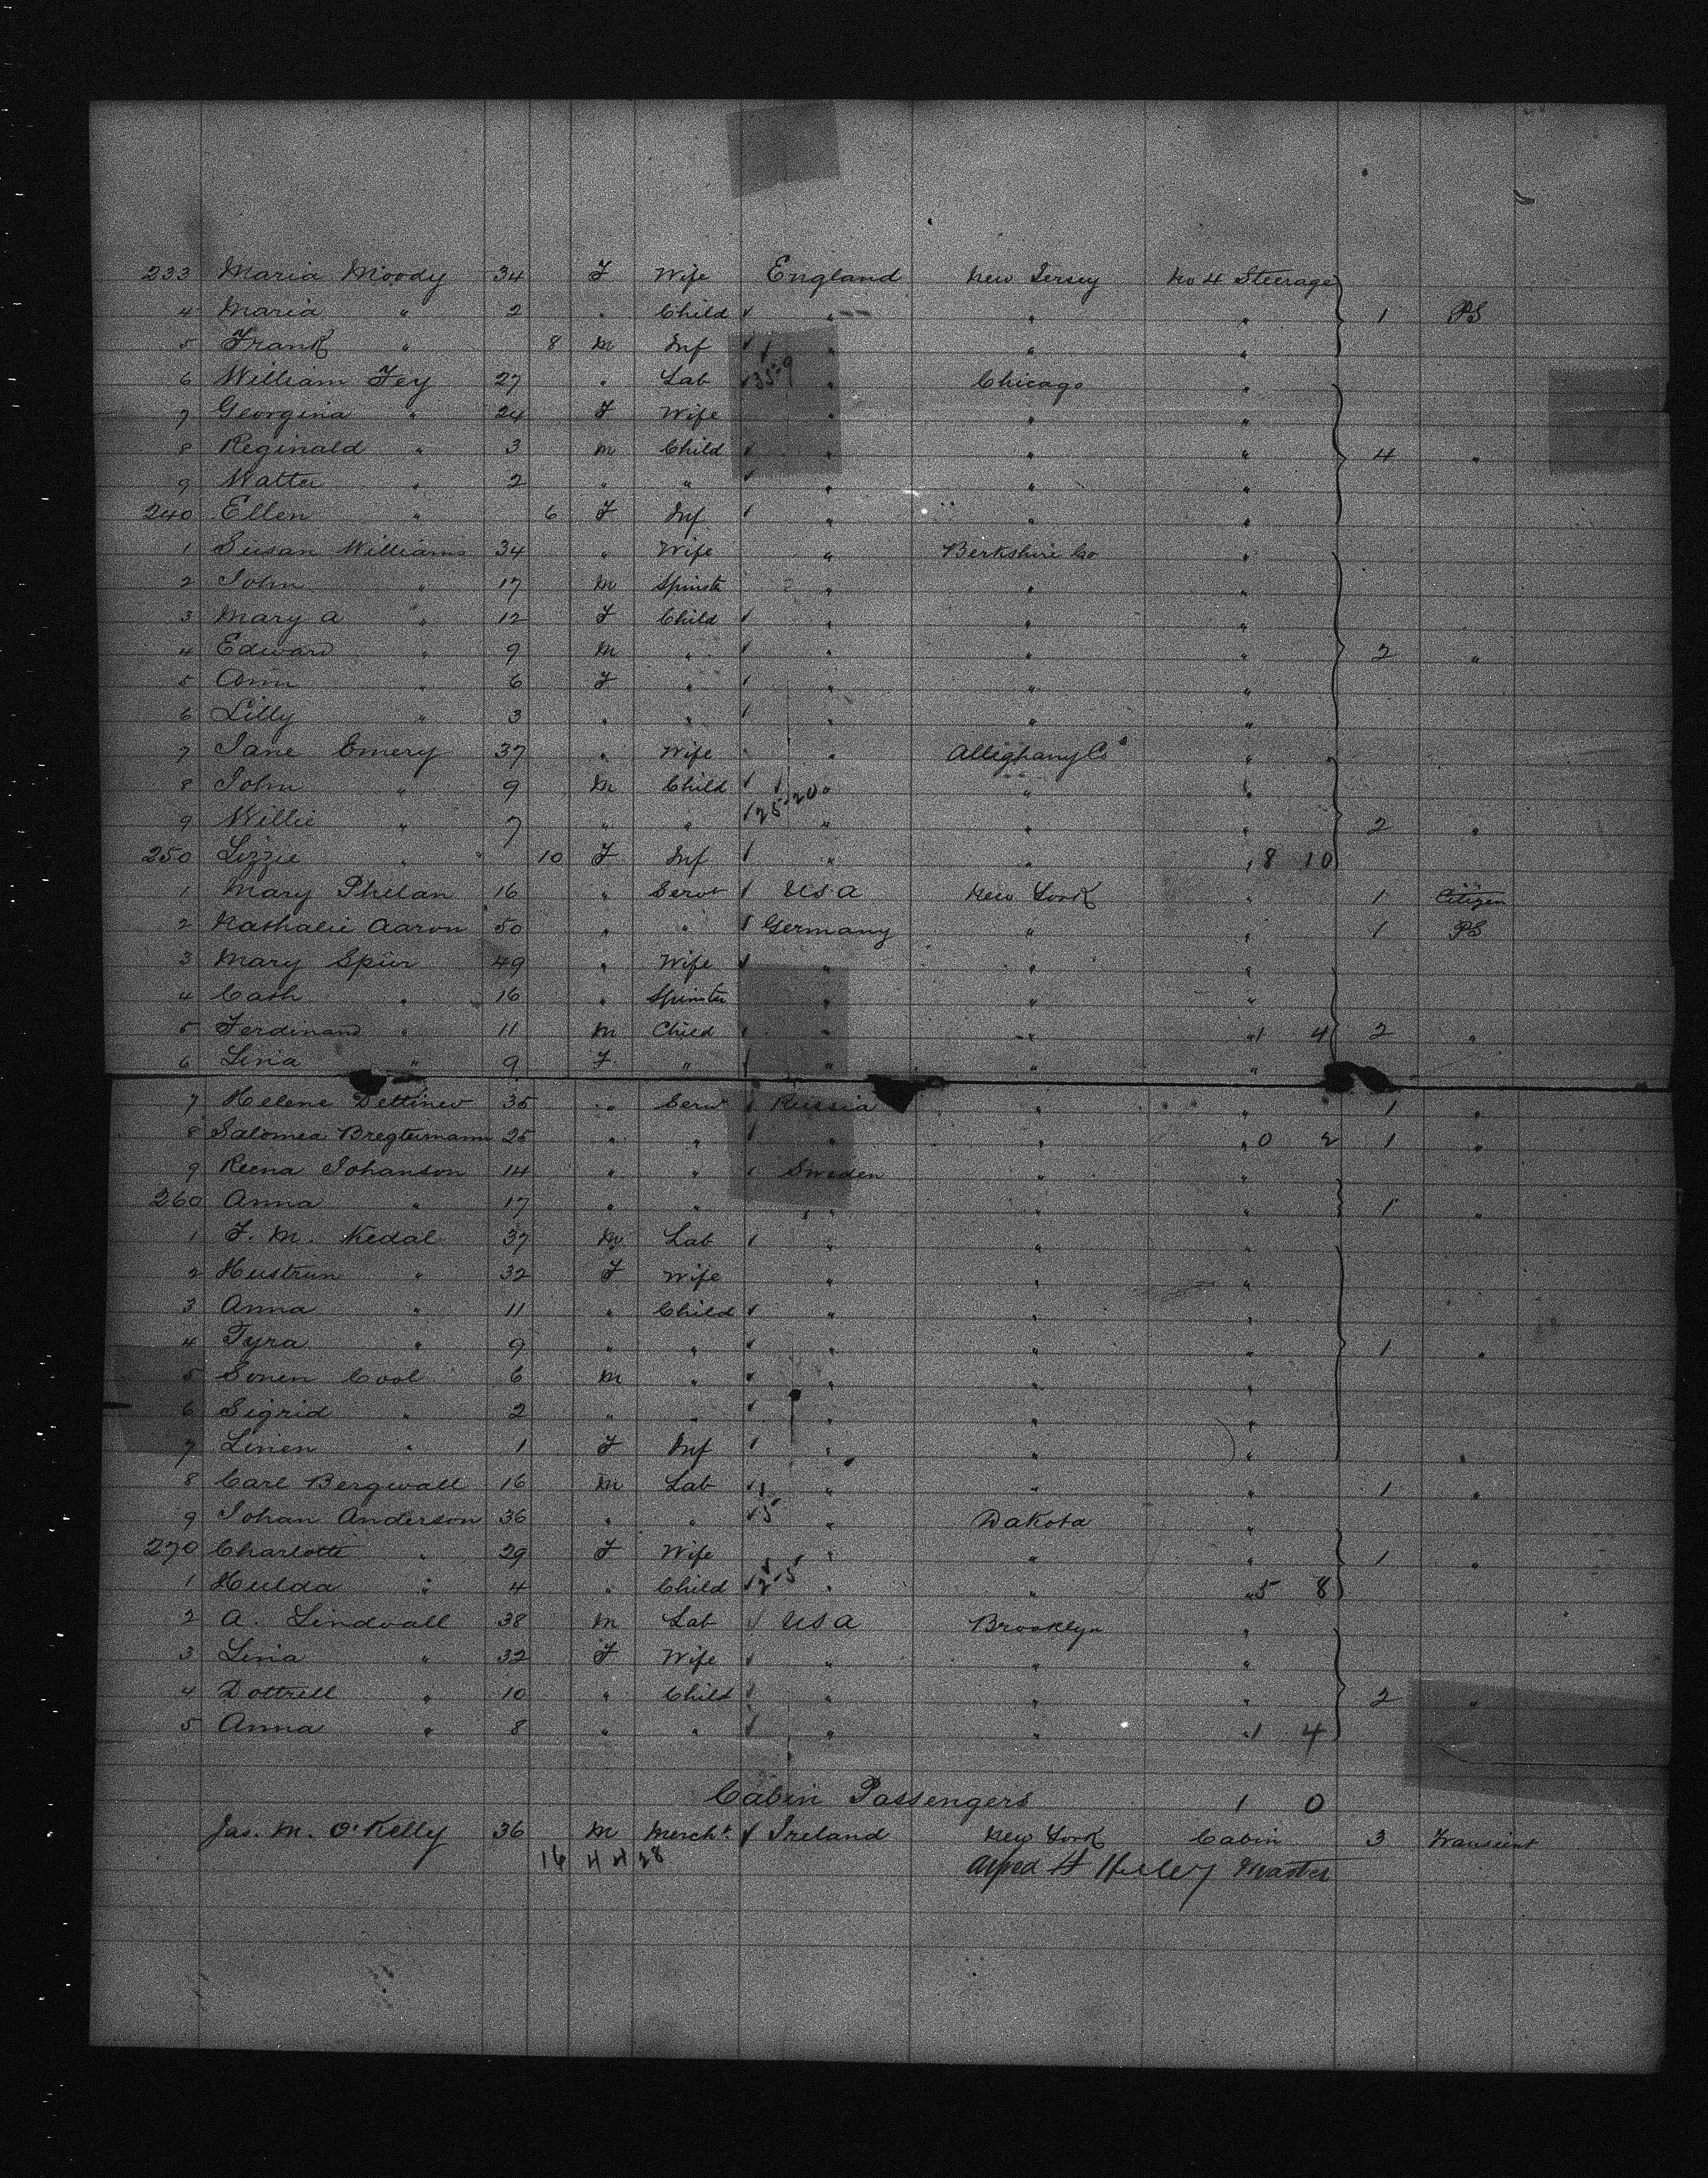 233 Maria Moody 34 F Wife England New Jersey No 4 Steerage
4 Maria " 2 " Child " " " 1 PS
5 Frank " 8 M Inf " " "
6 William Fey 27 " Lab " Chicago "
7 Georgina " 24 F Wife " " "
8 Reginald " 3 M Child " " " 4 "
9 Walter " 2 " " " " "
240 Ellen " 6 F Inf " " "
1 Susan Williams 34 " Wife " Berkshire Co "
2 John " 17 M Spinster " " "
3 Mary A " 12 F Child " " "
4 Edward " 9 M " " " " 2 "
5 Ann " 6 F " " " "
6 Lilly " 3 " " " " "
7 Jane Emery 37 " Wife " Allighany Co "
8 John " 9 M Child " " "
9 Willie " 7 " " 25 20 " " " 2 "
250 Lizzie " 10 F Inf " " " 8 10
1 Mary Phelan 16 " Servt USA New York " 1 Citizen
2 Nathalie Aaron 50 " " Germany " " 1 PS
3 Mary Spier 49 " Wife " " "
4 Cath " 16 " Spinster " " "
5 Ferdinand " 11 M Child " " " 1 4 2 "
6 Lina " 9 F " " " "
7 Helene 35 " Servt Russia " " 1 "
8 Salomea Bregtermann 25 " " " " " 0 2 1 "
9 Reena Johanson 14 " " Sweden " "
260 Anna " 17 " " " " " 1 "
1 F. M. Nedal 37 M Lab " " "
2 Hustrun " 32 F Wife " " "
3 Anna " 11 " Child " " "
4 Tyra " 9 " " " " " 1 "
5 Sonen Cool 6 M " " " "
6 Sigrid " 2 " " " " "
7 Linen " 1 F Inf " " " "
8 Carl Bergwall 16 M Lab " " " 1 "
9 Johan Anderson 36 " " " Dakota "
270 Charlotte " 29 F Wife " " " 1 "
1 Hulda " 4 " Child " " " 5 8
2 A. Lindvall 38 M Lab USA Brooklyn "
3 Lina " 32 F Wife " " "
4 Dottrell " 10 " Child " " " 2 "
5 Anna " 8 " " " " " 1 4
Cabin Passengers 1 0
Jas. M. O'Kelly 36 M Mercht. Ireland New York Cabin 3 Transient
16 28
Alfred H Master